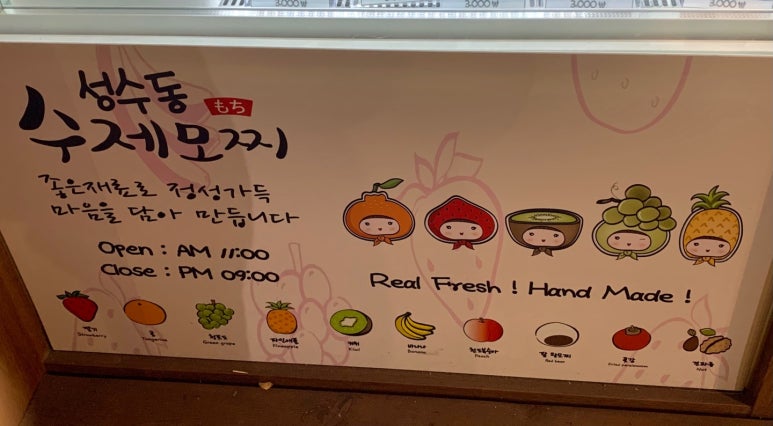 3,000원 3,000원 3,000원 3,000원
성수동
もち
수제모찌
좋은재료로 정성가득
마음을 담아 만듭니다
Open : AM 11:00
Close : PM 09:00
Real Fresh ! Hand Made !
딸기 귤 청포도 파인애플 키위 바나나 천도복숭아 팥 왕모찌 곶감 견과류
Strawberry Tangerine Green grape Pineapple Kiwi Banana Peach Red bean Dried persimmon Nut